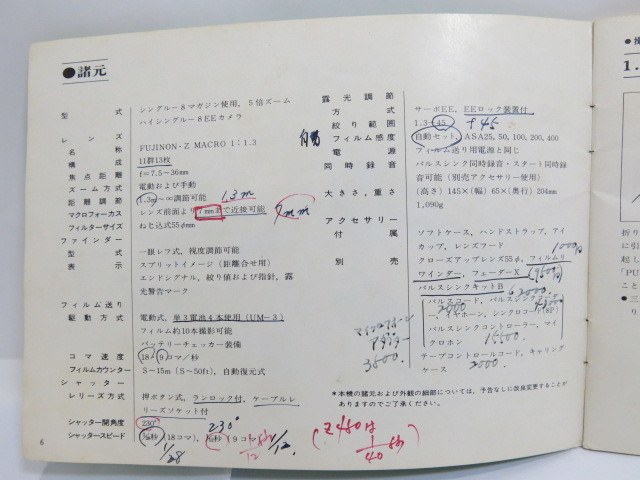 ●諸元
型式 シングル-8マガジン使用，5倍ズーム
ハイシングル-8EEカメラ
レンズ
名称 FUJINON・Z MACRO 1:1.3
構成 11群13枚
焦点距離 f=7.5〜36mm
ズーム方式 電動および手動
距離調節 1.3m〜∞調節可能 1.3m
マクロフォーカス レンズ前面より7mmまで近接可能 7mm
フィルターサイズ ねじ込式55φmm
ファインダー
型式 一眼レフ式，視度調節可能
表示 スプリットイメージ（距離合せ用）
エンドシグナル，絞り値および指針，露
光警告マーク
フィルム送り
駆動方式 電動式，単3電池4本使用（UM-3）
フィルム約10本撮影可能
バッテリーチェッカー装備
コマ速度 18，9コマ／秒
フィルムカウンター S〜15m（S〜50ft），自動復元式
シャッター
レリーズ方式 押ボタン式，ランロック付，ケーブルレ
リーズソケット付
シャッター開角度 230° 230°
シャッタースピード （18コマ），（9コマ）
1/28 1/12 1/12
(Z450は
1/40秒)
6
露光調節
方式 サーボEE，EEロック装置付
絞り範囲 1.3〜45 +45
フィルム感度 自動セット，ASA25, 50, 100, 200, 400
自動
電源 フィルム送り用電源と同じ
同時録音 パルスシンク同時録音・スタート同時録
音可能（別売アクセサリー使用）
大きさ，重さ （高さ）145×（幅）65×（奥行）204mm
1,090g
アクセサリー
付属 ソフトケース，ハンドストラップ，アイ
カップ，レンズフード
別売 クローズアップレンズ55φ，フィルムリ
1000円
ワインダー，フェーダーX
パルスシンクキットB
パルスコード，パルスシンク
ー，イヤホーン，シンクロコード（8P）
パルスシンクコントローラー，マイ
クロホン 15500.
テープコントロールコード，キャリング
ケース 2000.
マイクロフォーン
アダプター
3800.
＊本機の諸元および外観の細部については，予告なしに改良変更することが
ありますのでご了承ください。
1.